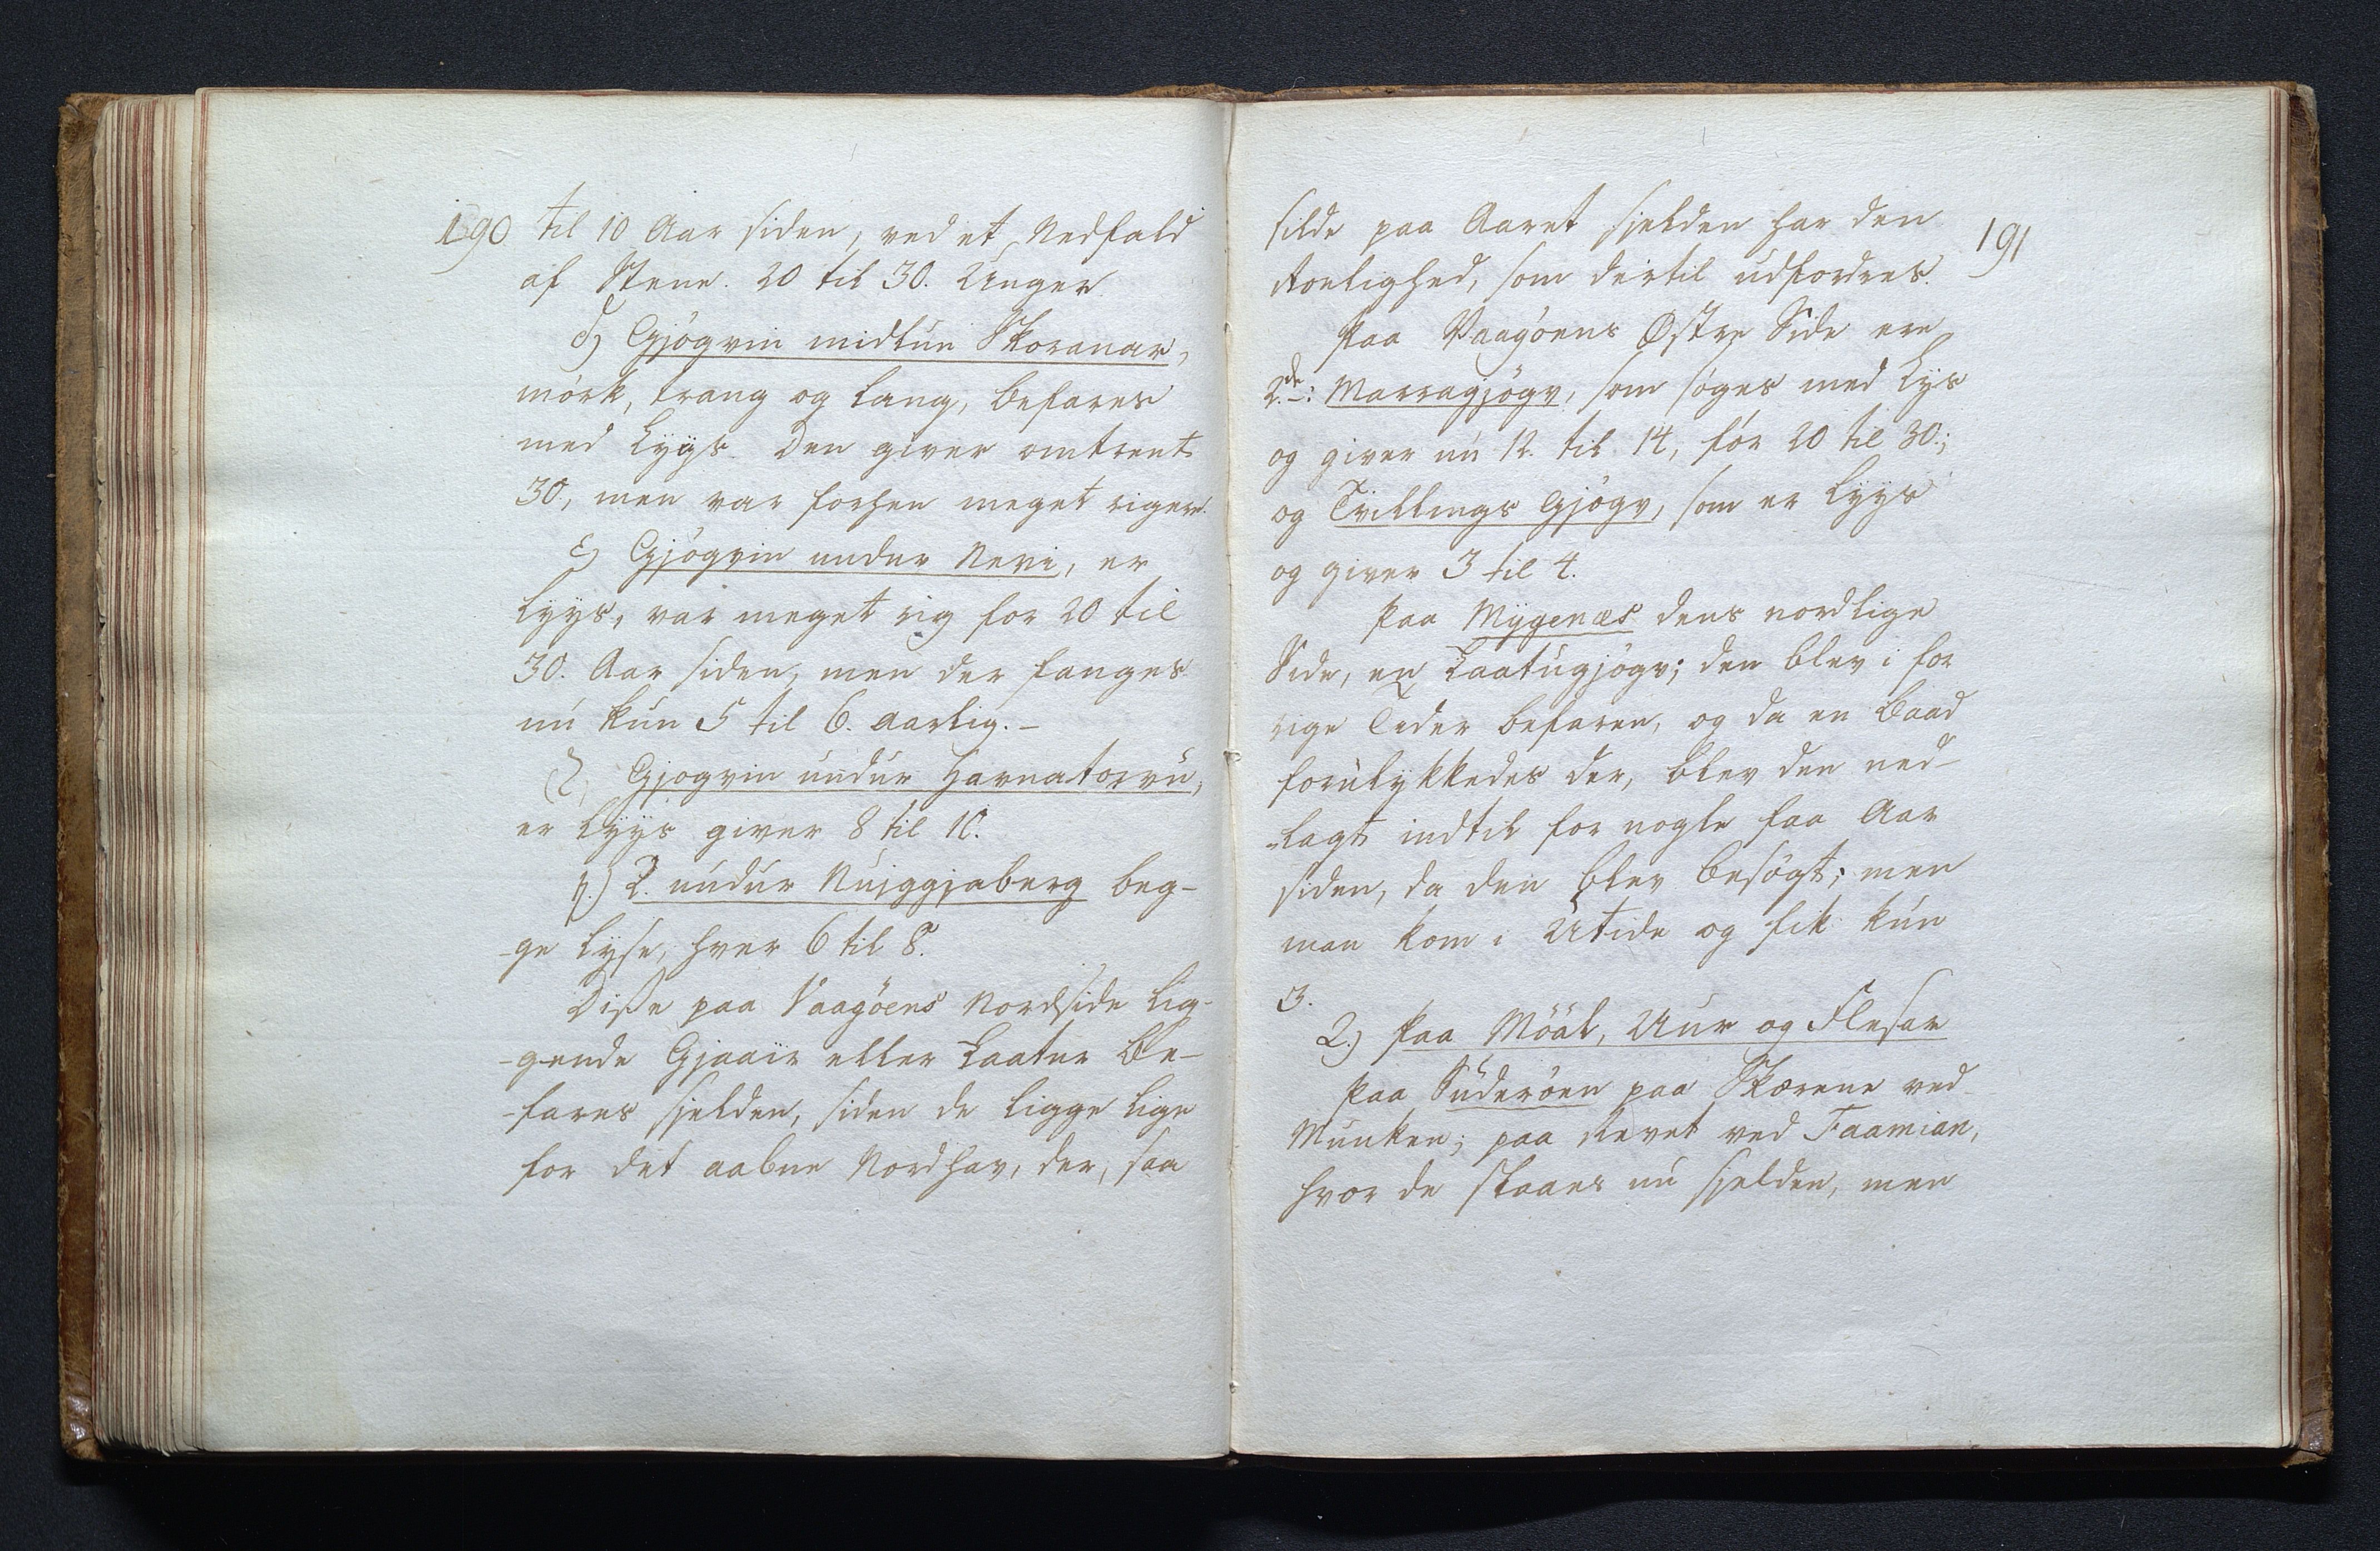 190
til 10 Aar siden, ved et Nedfald
af Stene. 20 til 30. Unger.
δ) Gjógvin midlun Skoranar,
mórk, trang og lang, befares
med Lyys. Den giver omtrent
30, men var forhen meget rigere.
ε) Gjógvin undur Nevi, er
Lyys, var meget rig for 20 til
30. Aar siden, men der fanges
nú kún 5 til 6. aarlig. –
ζ) Gjogvin undúr Havnatorvu,
er Lÿys giver 8 til 10.
η.) 2. úndúr Nujggjaberg beg-
-ge lyse, hver 6 til 8.
Disse paa Vaagöens Nordside lig-
-gende Gjaair eller Laatur be-
-fares sjelden, siden de ligge lige
for det aabne Nordhav, der, saa
191
silde paa Aaret sjelden har den
Roelighed, som dertil údfordres.
Paa Vaagóens Østre Side ere
2de: Marragjógv, som sóges med Lys
og giver nú 12. til 14, fór 20 til 30.;
og Tvillings Gjógv, som er Lyys
og giver 3 til 4.
Paa Mygenæs dens nordlige
Side, en Laatúgjógv; den blev i for
rige Tider befaren, og da en Baad
forúlykkedes der, blev den ned-
-lagt indtil for nogle faa Aar
siden, da den blev besógt; men
man kom i Utide og fik kún
3.
2.) Paa Móál, Uur og Flesar
Paa Súderóen paa Skærene ved
Múnken; paa Revet ved Faamian,
hvor de slaaes nú sjelden, men